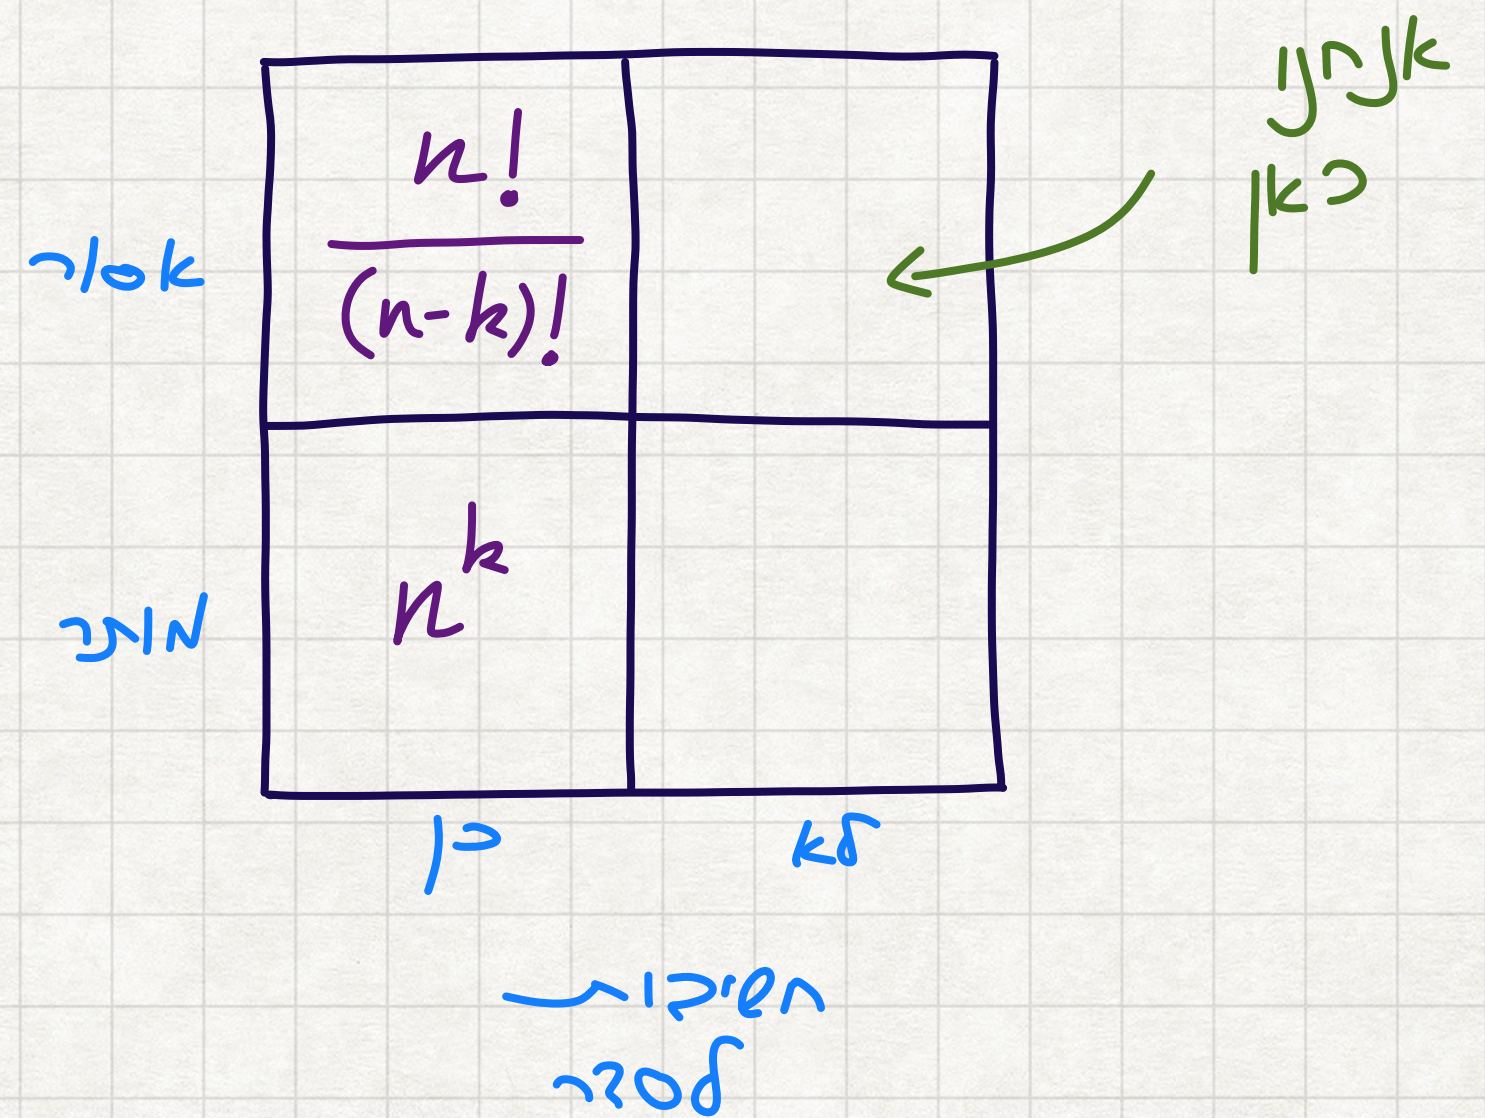 אנחנו
כאן
אסור
n!
(n-k)!
מותר
n^k
כן
לא
חשיבות
לסדר